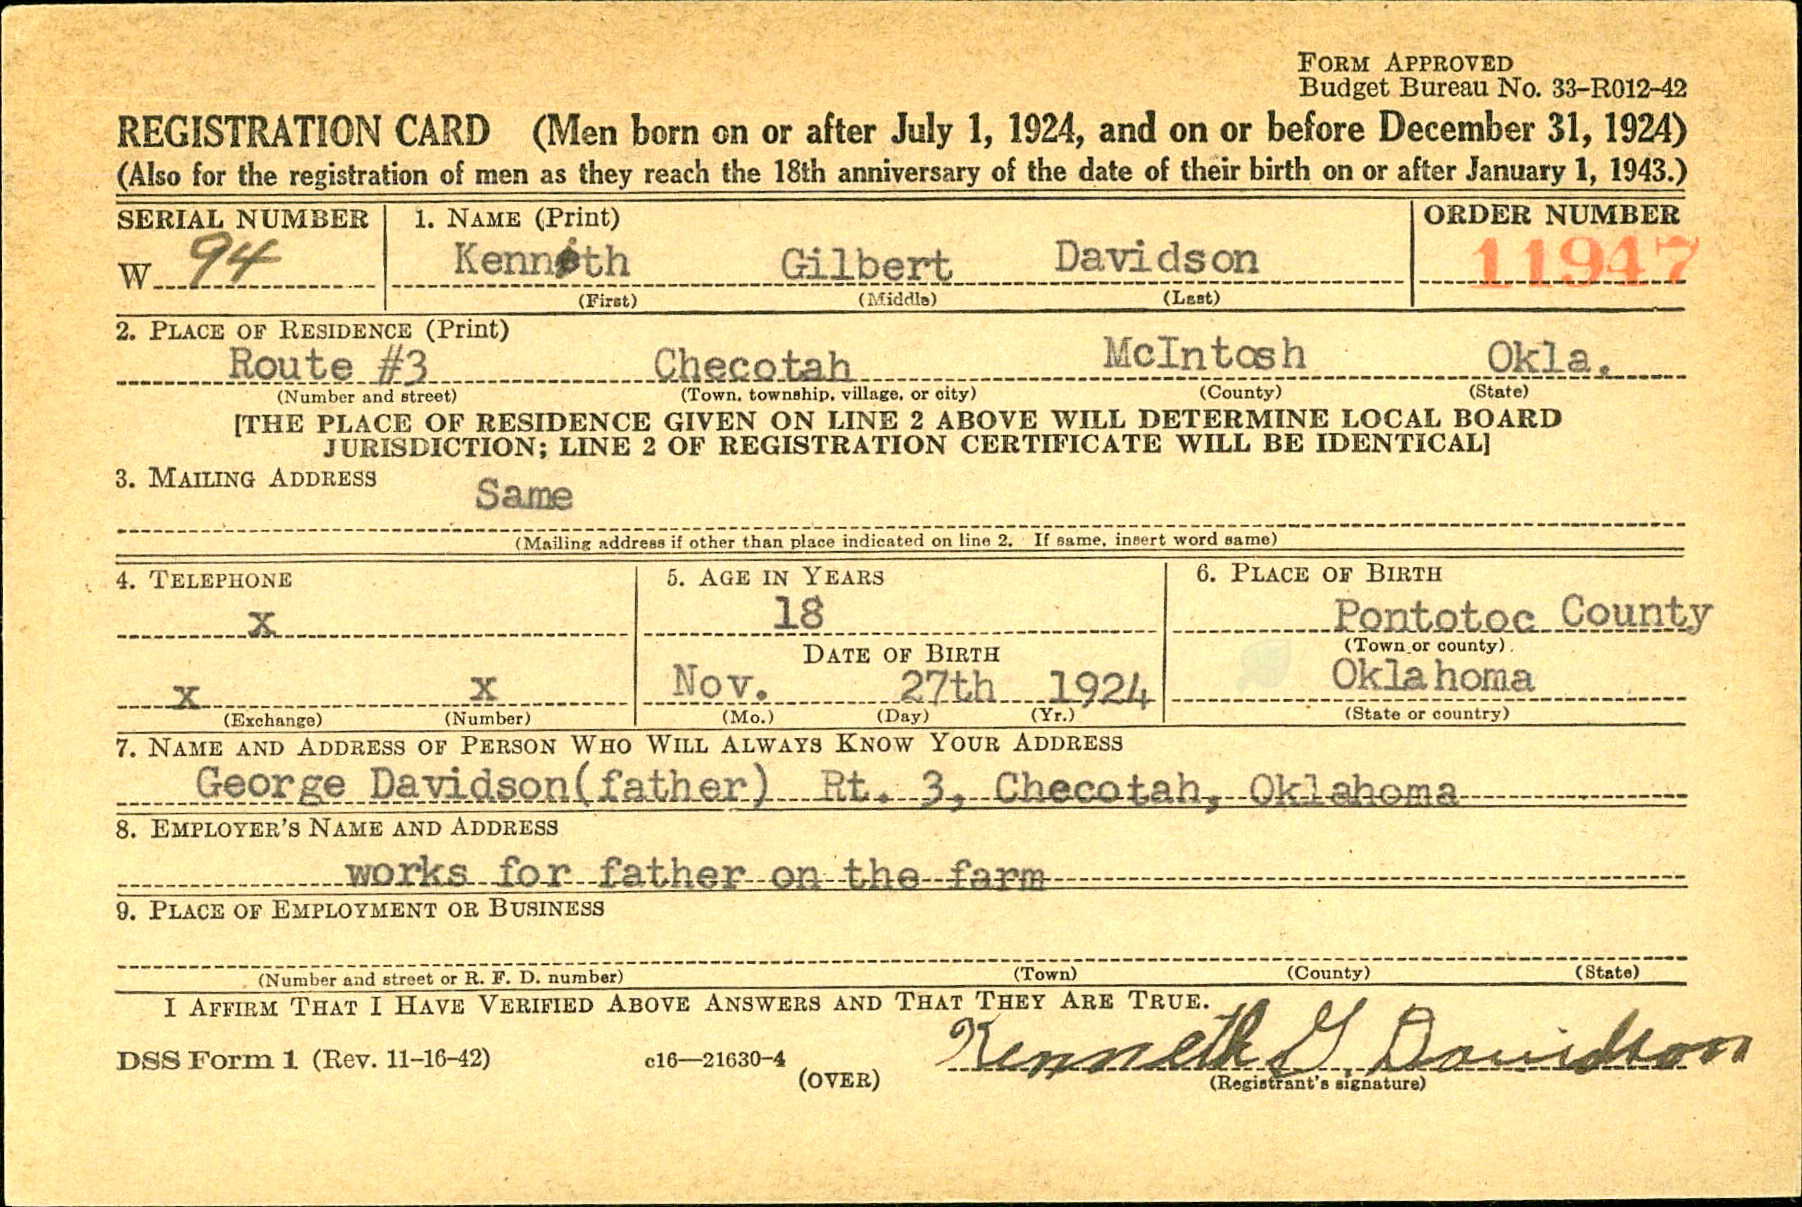 FORM APPROVED
Budget Bureau No. 33–R012–42
REGISTRATION CARD (Men born on or after July 1, 1924, and on or before December 31, 1924)
(Also for the registration of men as they reach the 18th anniversary of the date of their birth on or after January 1, 1943.)
SERIAL NUMBER 1. NAME (Print) ORDER NUMBER
W 94 Kenneth Gilbert Davidson 11947
(First) (Middle) (Last)
2. PLACE OF RESIDENCE (Print)
Route #3 Checotah McIntosh Okla.
(Number and street) (Town, township, village, or city) (County) (State)
[THE PLACE OF RESIDENCE GIVEN ON LINE 2 ABOVE WILL DETERMINE LOCAL BOARD
JURISDICTION; LINE 2 OF REGISTRATION CERTIFICATE WILL BE IDENTICAL]
3. MAILING ADDRESS
Same
(Mailing address if other than place indicated on line 2. If same, insert word same)
4. TELEPHONE 5. AGE IN YEARS 6. PLACE OF BIRTH
x 18 Pontotoc County
DATE OF BIRTH (Town or county)
x x Nov. 27th 1924 Oklahoma
(Exchange) (Number) (Mo.) (Day) (Yr.) (State or country)
7. NAME AND ADDRESS OF PERSON WHO WILL ALWAYS KNOW YOUR ADDRESS
George Davidson(father) Rt. 3, Checotah, Oklahoma
8. EMPLOYER'S NAME AND ADDRESS
works for father on the farm
9. PLACE OF EMPLOYMENT OR BUSINESS
(Number and street or R. F. D. number) (Town) (County) (State)
I AFFIRM THAT I HAVE VERIFIED ABOVE ANSWERS AND THAT THEY ARE TRUE.
DSS Form 1 (Rev. 11-16-42) c16—21630-4 (OVER) Kenneth G. Davidson
(Registrant's signature)